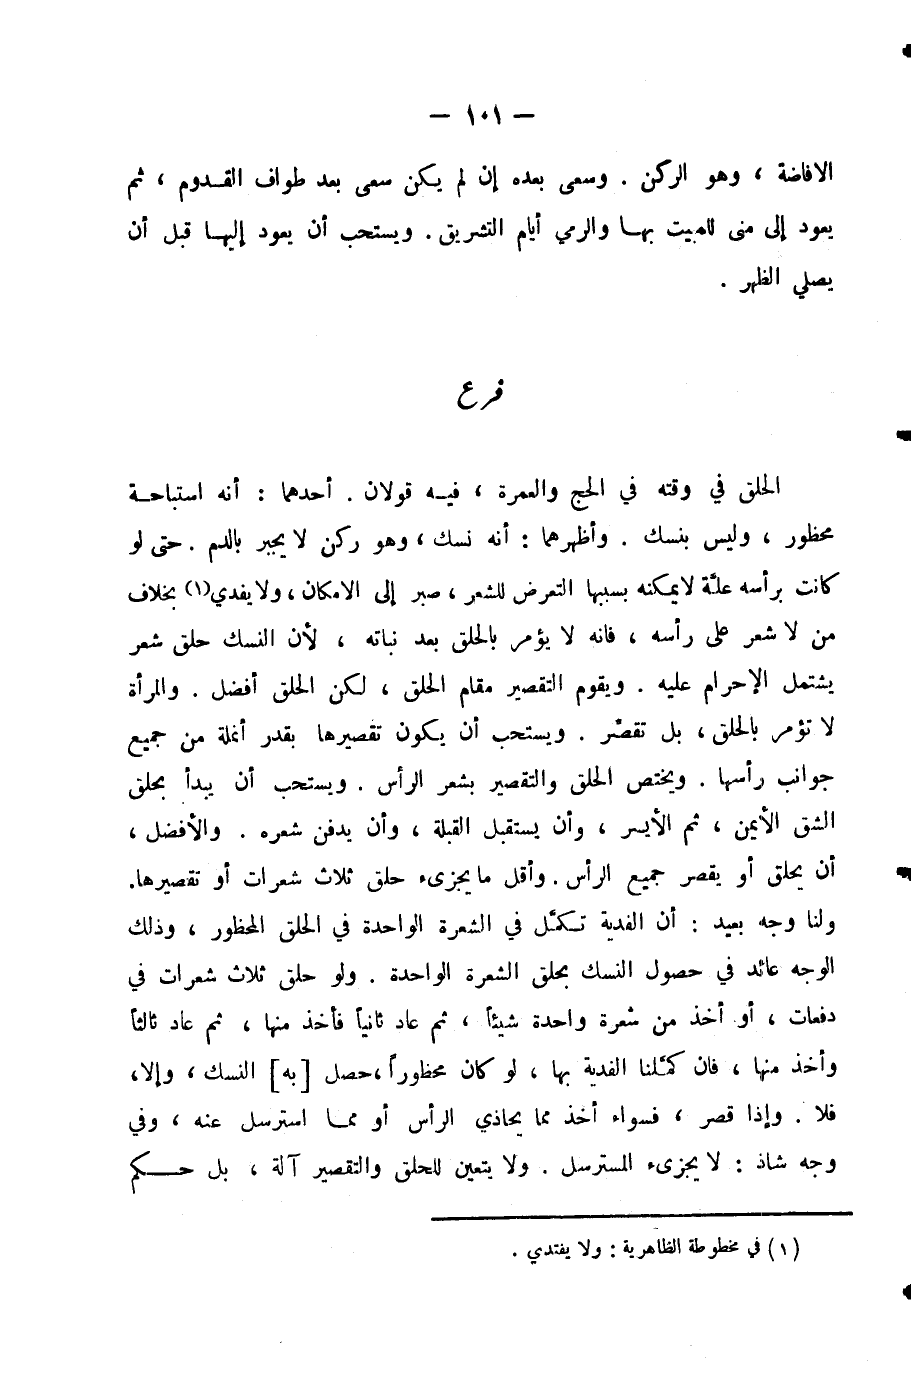 — ١٠١ —
الافاضة ، وهو الركن . وسعى بعده إن لم يكن سعى بعد طواف القدوم ، ثم
يعود إلى منى للمبيت بها والرمي أيام التشريق . ويستحب أن يعود إليها قبل أن
يصلي الظهر .
فرع
الحلق في وقته في الحج والعمرة ، فيه قولان . أحدهما : أنه استباحة
محظور ، وليس بنسك . وأظهرهما : أنه نسك ، وهو ركن لا يجبر بالدم . حتى لو
كانت برأسه علَّة لا يمكنه بسببها التعرض للشعر ، صبر إلى الامكان ، ولا يفدي(١) بخلاف
من لا شعر على رأسه ، فانه لا يؤمر بالحلق بعد نباته ، لأن النسك حلق شعر
يشتمل الإحرام عليه . ويقوم التقصير مقام الحلق ، لكن الحلق أفضل . والمرأة
لا تؤمر بالحلق ، بل تقصّر . ويستحب أن يكون تقصيرها بقدر أنملة من جميع
جوانب رأسها . ويختص الحلق والتقصير بشعر الرأس . ويستحب أن يبدأ بحلق
الشق الأيمن ، ثم الأيسر ، وأن يستقبل القبلة ، وأن يدفن شعره . والأفضل ،
أن يحلق أو يقصر جميع الرأس . وأقل ما يجزىء حلق ثلاث شعرات أو تقصيرها.
ولنا وجه بعيد : أن الفدية تكمَّل في الشعرة الواحدة في الحلق المحظور ، وذلك
الوجه عائد في حصول النسك بحلق الشعرة الواحدة . ولو حلق ثلاث شعرات في
دفعات ، أو أخذ من شعرة واحدة شيئاً ، ثم عاد ثانياً فأخذ منها ، ثم عاد ثالثاً
وأخذ منها ، فان كمَّلنا الفدية بها ، لو كان محظوراً ، حصل [ به ] النسك ، وإلا،
فلا . وإذا قصر ، فسواء أخذ مما يحاذي الرأس أو مما استرسل عنه ، وفي
وجه شاذ : لا يجزىء المسترسل . ولا يتعين للحلق والتقصير آلة ، بل حكم
(١) في مخطوطة الظاهرية : ولا يفتدي .